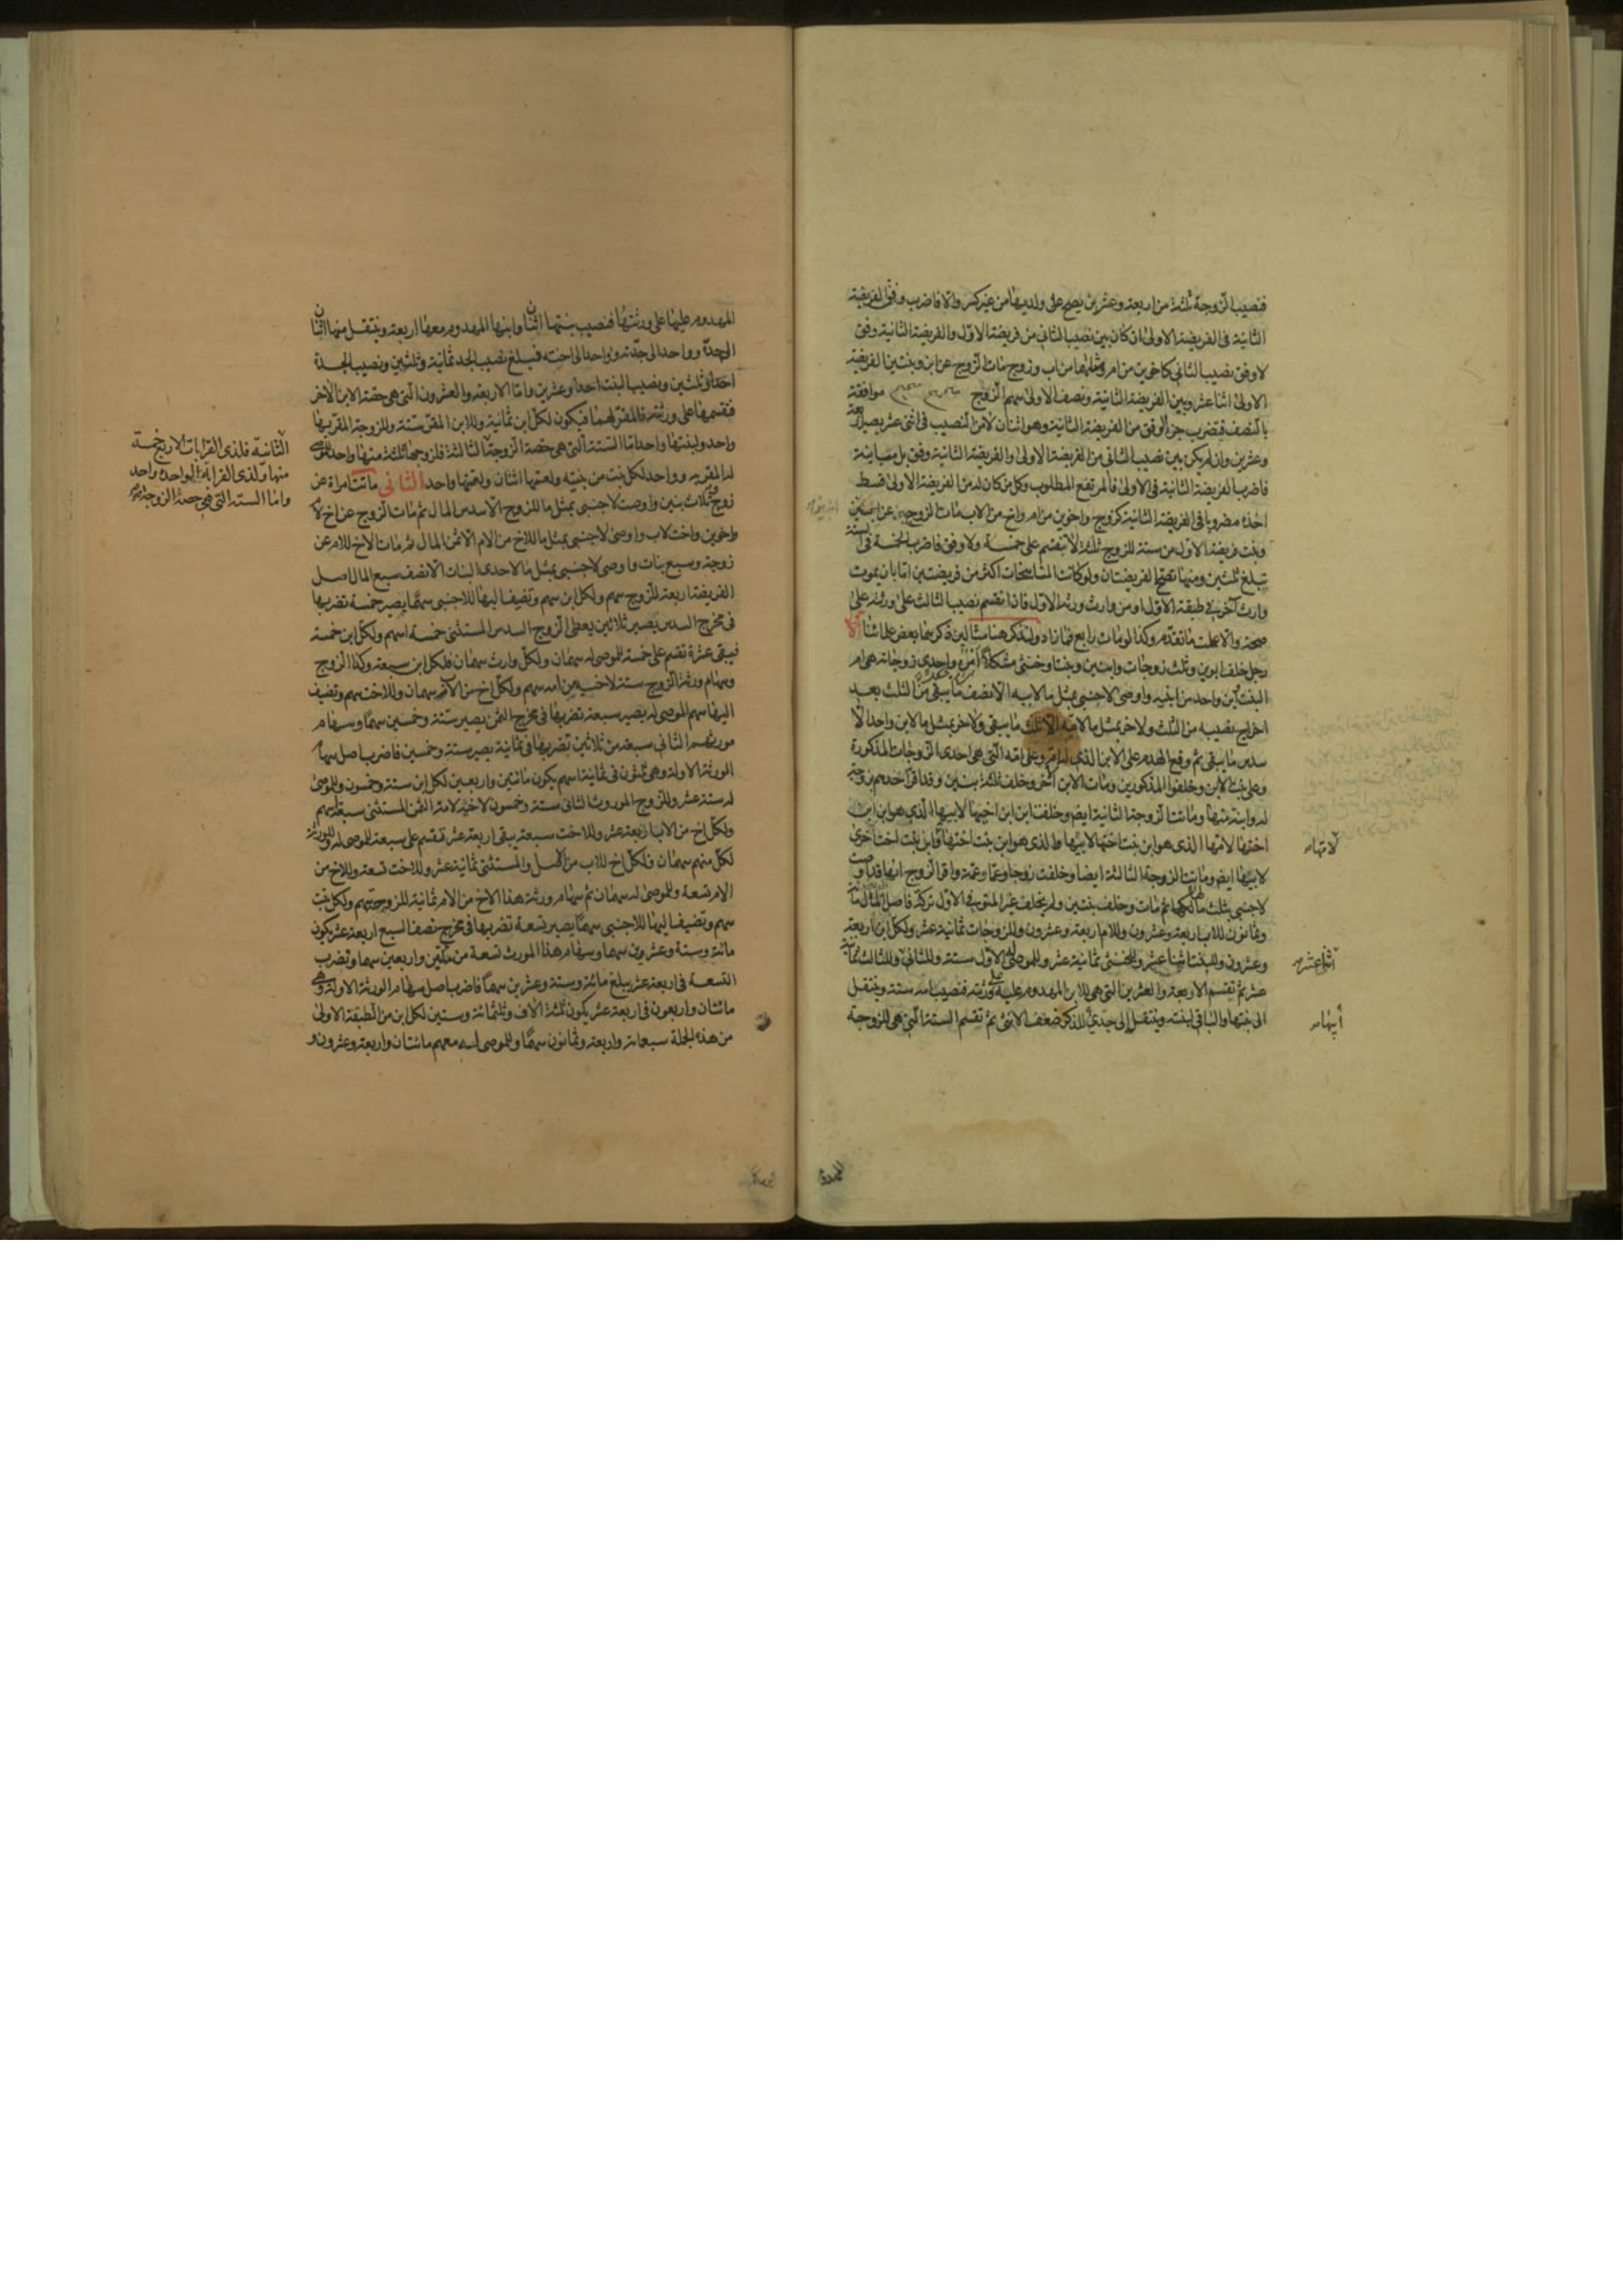 فنصيب الزوجة ثلثة من اربعة وعشرين يصح على ولديها من غير كسر والا فاضرب وفق الفريضة
الثانية فى الفريضة الاولى ان كان بين نصيب الثانى من فريضة الاول والفريضة الثانية وفق
لا وفق نصيب الثانى كاخوين من ام ومثلهما من اب وزوج مات الزوج عن ابن وبنتين الفريضة
الاولى اثنا عشر وبين الفريضة الثانية ونصف الاولى سهم الزوج موافقة
بالنصف فيضرب جزء الوفق من الفريضة الثانية وهو اثنان لا من النصيب فى اثنى عشر يصير اربعة
وعشرين وان لم يكن بين نصيب الثانى من الفريضة الاولى والفريضة الثانية وفق بل مباينة
فاضرب الفريضة الثانية فى الاولى فالمرتفع المطلوب وكل من كان له من الفريضة الاولى قسط
اخذه مضروبا فى الفريضة الثانية كزوج واخوين من ام واخ من الاب مات الزوج عن ابنين
وبنت فريضة الاول من ستة للزوج ثلثة لا ينقسم على خمسة ولا وفق فاضرب الخمسة فى الستة
تبلغ ثلثين ومنها تصح الفريضتان ولو كانت المناسخات اكثر من فريضتين اما بان يموت
وارث آخر فى طبقة الاول او من وارث ورثة الاول فاذا انقسم نصيب الثالث على ورثته على
صحة والا عملت ما تقدم وكذا لو مات رابع فما زاد ولنذكر هنا مثالين ذكرهما بعض علمائنا
رجل خلف ابوين وثلث زوجات وابنين وبنتا وخنثى مشكلا واحدى زوجاته هى ام
البنت ابن واحد من ابنيه واوصى لاجنبى بمثل ما لابيه الا نصف ما يبقى من الثلث بعد
اخراج نصيبه من الثلث ولاخر بمثل ما لامه الا ثلث ما يبقى ولاخر بمثل ما لابن واحد الا
سدس ما يبقى ثم وقع الهدم على الابن الذى له ام وعلى امه التى هى احدى الزوجات المذكورة
وعلى بنت الابن وخلفوا المذكورين ومات الابن الآخر وخلف ثلثة بنين وقد اقر احدهم بزوجة
له وابنة منها وماتت الزوجة الثانية ايضا وخلفت ابن ابن اخيها لابيها الذى هو ابن ابن
اختها لامها الذى هو ابن بنت اختها لابيها الذى هو ابن بنت اختها وابن بنت اخت اخرى
لابيها ايضا وماتت الزوجة الثالثة ايضا وخلفت زوجا وعما وعمة واقر الزوج انها قد اوصت
لاجنبى بثلث مالها ثم مات وخلف بنتين ولم يخلف غير المتوفى الاول تركة فاصل المال مائة
وثمانون للاب اربعة وعشرون وللام اربعة وعشرون وللزوجات ثمانية عشر ولكل ابن اربعة
وعشرون وللبنت اثنا عشر وللخنثى ثمانية عشر وللموصى له الاول ستة وللثانى وللثالث ثمانية
عشر ثم تقسم الاربعة والعشرين التى هى للابن المهدوم عليه على ورثته فنصيب امه ستة وينتقل
الى بنتها والباقى لبنته وينتقل الى جديها للذكر ضعف الانثى ثم تقسم الستة التى هى للزوجة
لامها
اثنا عشر
ايها
المهدوم عليها على ورثتها فنصيب بنتها اثنان وابنها المهدوم معها اربعة وينتقل منها اثنان
الى جده وواحد الى جدته وواحد الى اخته فيبلغ نصيب الجد ثمانية وثلثين ونصيب الجدة
احدا وثلثين ونصيب البنت احدا وعشرين واما الاربعة والعشرون التى هى حصة الابن الآخر
فنقسمها على ورثته فالمقر لهما فيكون لكل ابن ثمانية وللابن المقر ستة وللزوجة المقر بها
واحد ولبنتها واحد اما الستة التى هى حصة الزوجة الثالثة فلزوجها ثلثة منها واحد للموصى
له المقر به وواحد لكل بنت من بنتيه ولعمها اثنان ولعمتها واحد الثانى ماتت امراة عن
زوج وثلاث بنين واوصت لاجنبى بمثل ما للزوج الا سدس المال ثم مات الزوج عن اخ لام
واخوين واخت لاب واوصى لاجنبى بمثل ما للاخ من الام الا ثمن المال ثم مات الاخ للام عن
زوجة وسبع بنات واوصى لاجنبى بمثل ما لاحدى البنات الا نصف سبع المال اصل
الفريضة اربعة للزوج سهم ولكل ابن سهم وتضيف اليها للاجنبى سهما يصير خمسة تضربها
فى مخرج السدس يصير ثلاثين يعطى الزوج السدس المستثنى خمسة اسهم ولكل ابن خمسة
فيبقى عشرة تقسم على خمسة للموصى له سهمان ولكل وارث سهمان فلكل ابن سبعة وكذا الزوج
وسهام ورثة الزوج ستة لاخيه من امه سهم ولكل اخ من الاب سهمان وللاخت سهم وتضيف
اليها سهم الموصى له يصير سبعة تضربها فى مخرج الثمن يصير ستة وخمسين سهما وسهام
مورثهم الثانى سبعة من ثلاثين تضربها فى ثمانية يصير ستة وخمسين فاضرب اصل سهام
الورثة الاولة وهى ثلثون فى ثمانية اسهم يكون مائتين واربعين لكل ابن ستة وخمسون وللموصى
له ستة عشر وللزوج الموروث الثانى ستة وخمسون لاخيه لامه الثمن المستثنى سبعة اسهم
ولكل اخ من الاب اربعة عشر وللاخت سبعة يبقى اربعة عشر تقسم على سبعة للموصى له وللورثة
لكل منهم سهمان فلكل اخ للاب من الاصل والمستثنى ثمانية عشر وللاخت تسعة وللاخ من
الام تسعة وللموصى له سهمان ثم سهام ورثة هذا الاخ من الام ثمانية للزوجة سهم ولكل بنت
سهم وتضيف اليها للاجنبى سهما يصير تسعة تضربها فى مخرج نصف السبع اربعة عشر يكون
مائة وستة وعشرون سهما وسهام هذا المورث تسعة من مائتين واربعين سهما وتضرب
التسعة فى اربعة عشر يبلغ مائة وستة وعشرين سهما فاضرب اصل سهام الورثة الاولة وهى
مائتان واربعون فى اربعة عشر يكون ثلثة الاف وثلثمائة وستين لكل ابن من الطبقة الاولى
من هذه الجملة سبعمائة واربعة وثمانون سهما وللموصى له معهم مائتان واربعة وعشرون و
الثانية فلذى القرابات الاربع خمسة
منها ولذى القرابة الواحدة واحد
واما الستة التى هى حصة الزوجة